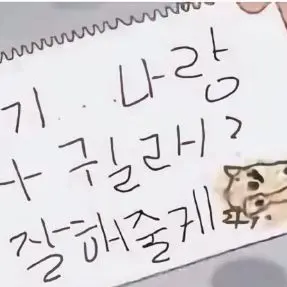 기.. 나랑
귈래?
잘해줄게